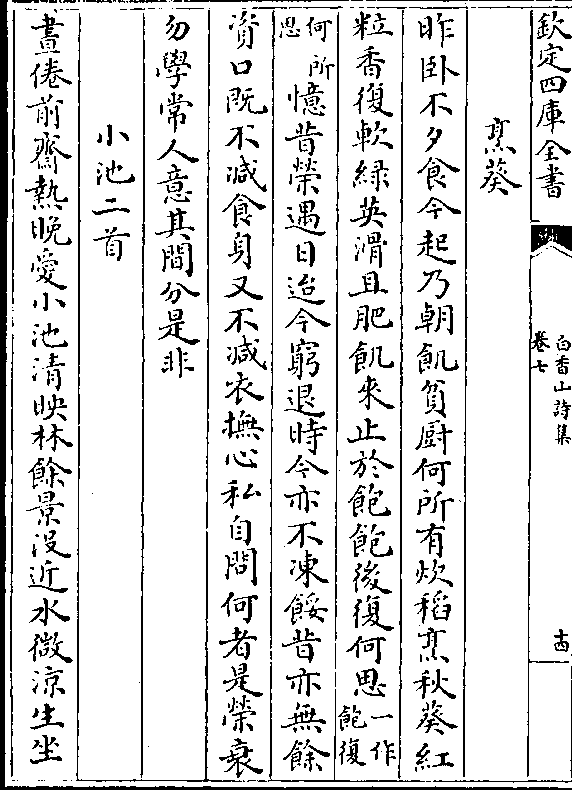 欽定四庫全書
白香山詩集
卷七
十四
烹葵
昨卧不夕食今起乃朝飢貧厨何所有炊稻烹秋葵紅
粒香復軟緑英滑且肥飢來止於飽飽後復何思一作飽復
何所思憶昔榮遇日迨今窮退時今亦不凍餒昔亦無餘
資口既不減食身又不減衣撫心私自問何者是榮衰
勿學常人意其間分是非
小池二首
晝倦前齋熱晚愛小池清映林餘景没近水微涼生坐